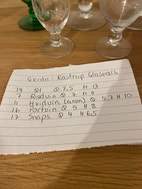 Gerda: Kastrup Glasværk
19 Øl Ø 7,5 H 13
7 Rødvin Ø 7 H 11
11 Hvidvin (grøn) Ø 5,7 H 10
16 Portvin Ø 5 H 8
17 Snaps Ø 4 H 6,5